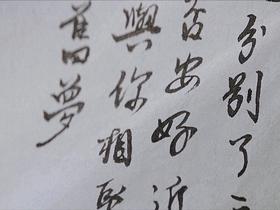 分別了
否安好近
與你相聚
舊夢